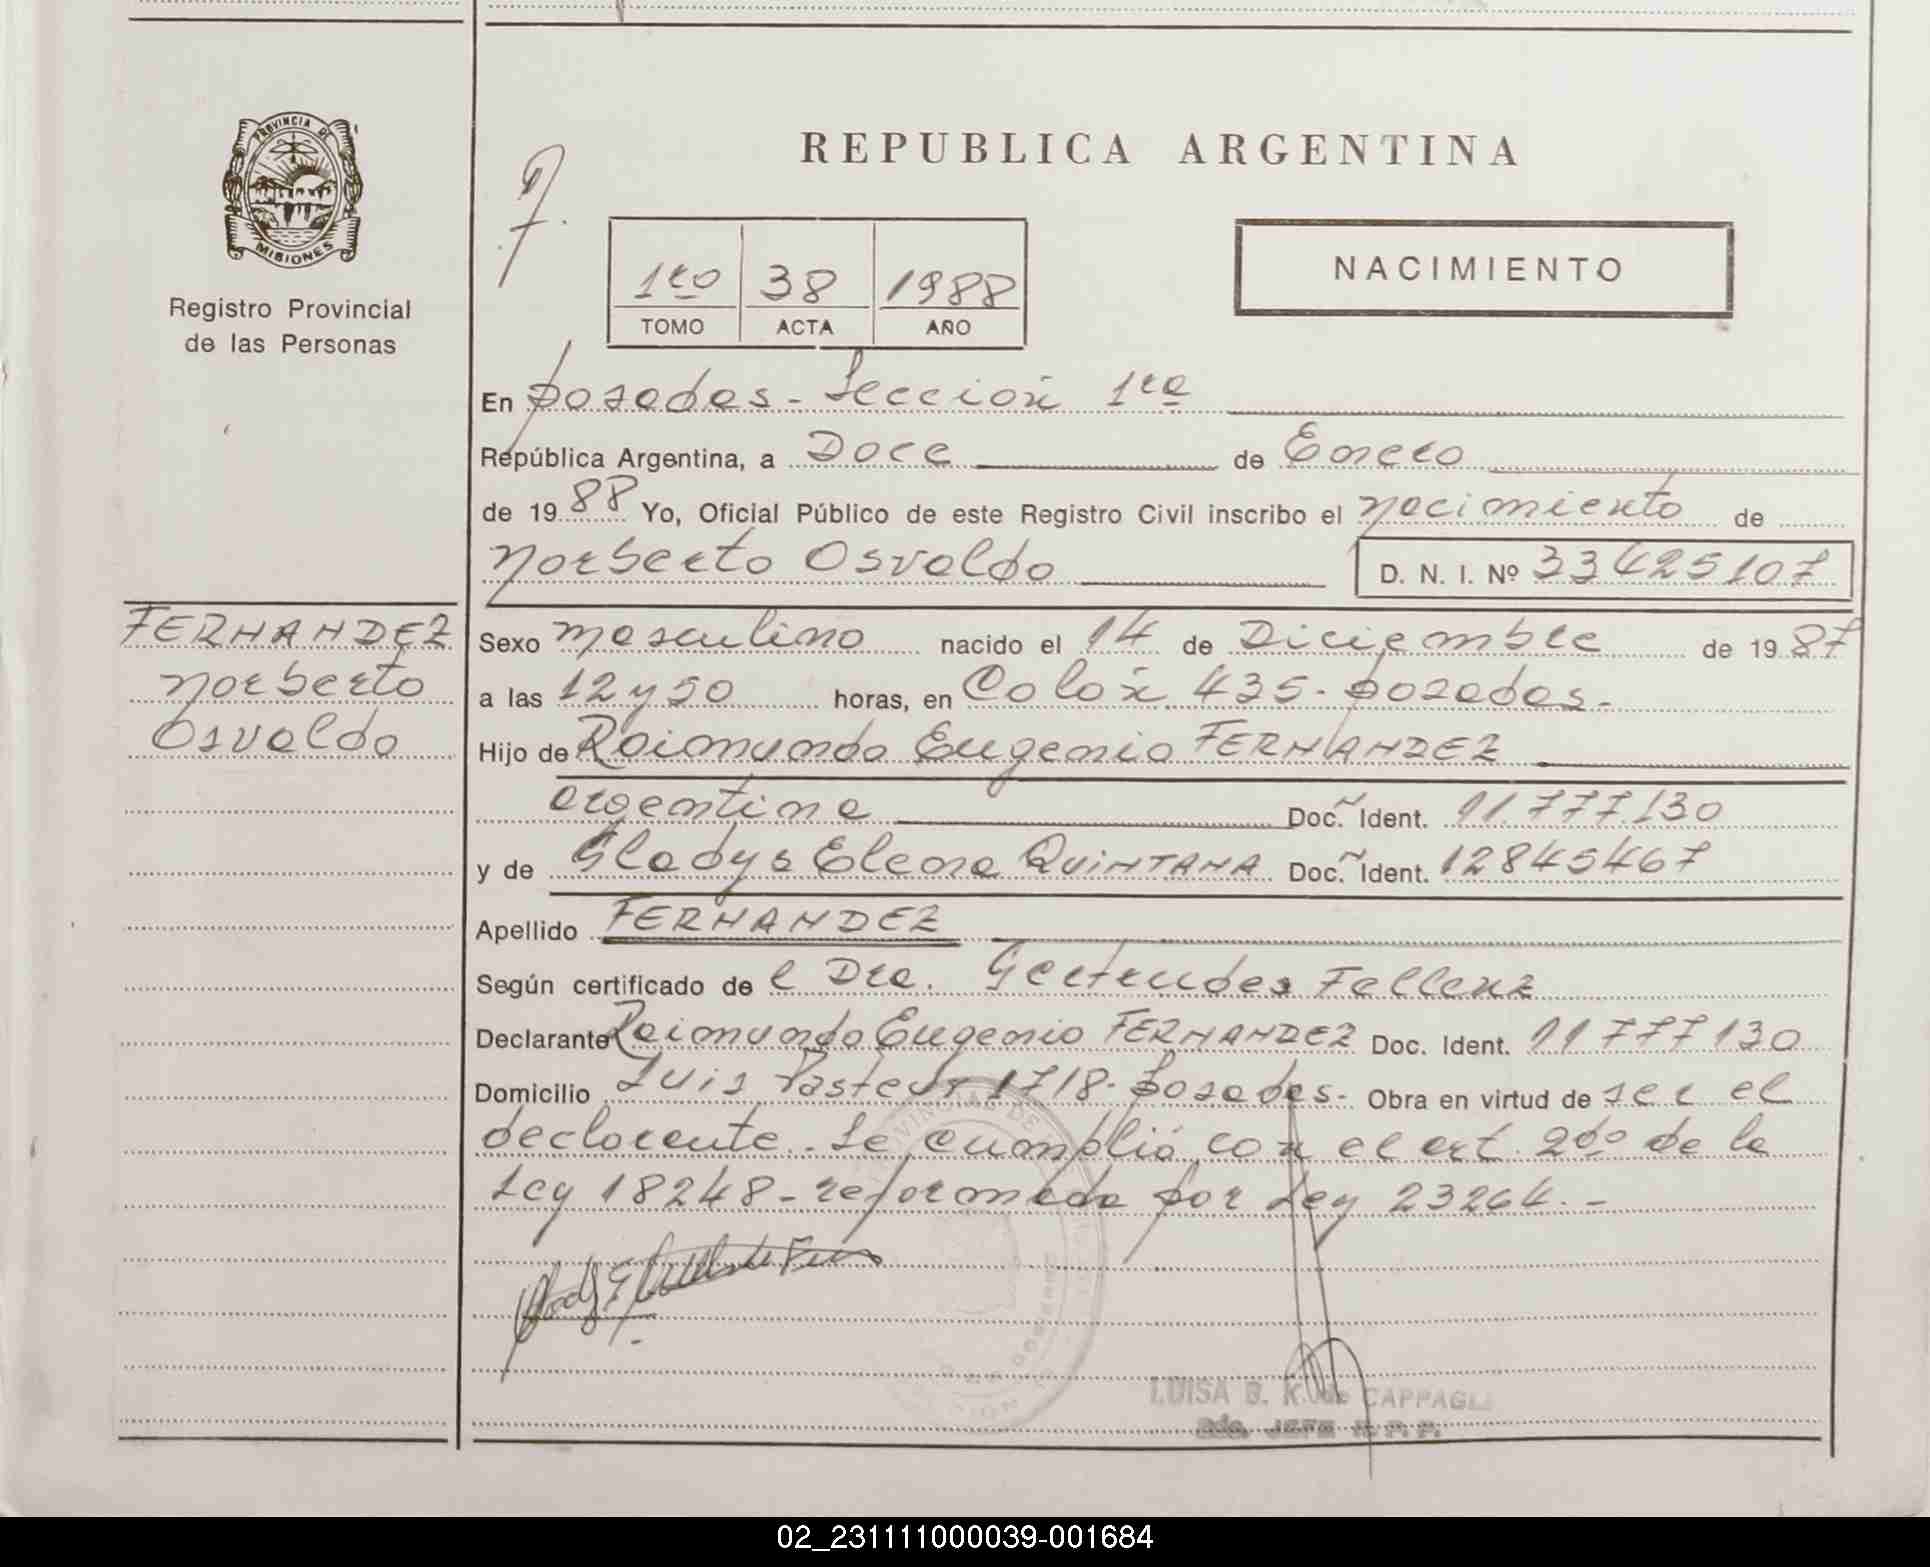 PROVINCIA DE
MISIONES
Registro Provincial
de las Personas
REPUBLICA ARGENTINA
NACIMIENTO
1ro 38 1988
TOMO ACTA AÑO
En Posadas - Sección 1ra
República Argentina, a Doce de Enero
de 1988 Yo, Oficial Público de este Registro Civil inscribo el nacimiento de
Norberto Osvaldo D. N. I. Nº 33425107
FERNANDEZ
Norberto
Osvaldo
Sexo masculino nacido el 14 de Diciembre de 1987
a las 12 y 50 horas, en Colón 435 - Posadas -
Hijo de Raimundo Eugenio FERNANDEZ
argentina Doc. Ident. 11.777.130
y de Gladys Elena QUINTANA Doc. Ident. 12845467
Apellido FERNANDEZ
Según certificado de l Dra. Gertrudes Fellenz
Declarante Raimundo Eugenio FERNANDEZ Doc. Ident. 11777130
Domicilio Luis Pasteur 1718 - Posadas - Obra en virtud de ser el
declarante. Se cumplió con el art. 2do de la
Ley 18248 - reformada por Ley 23264. -
LUISA B. K. de CAPPAGLI
2do. JEFE R. P. P.
02_231111000039-001684